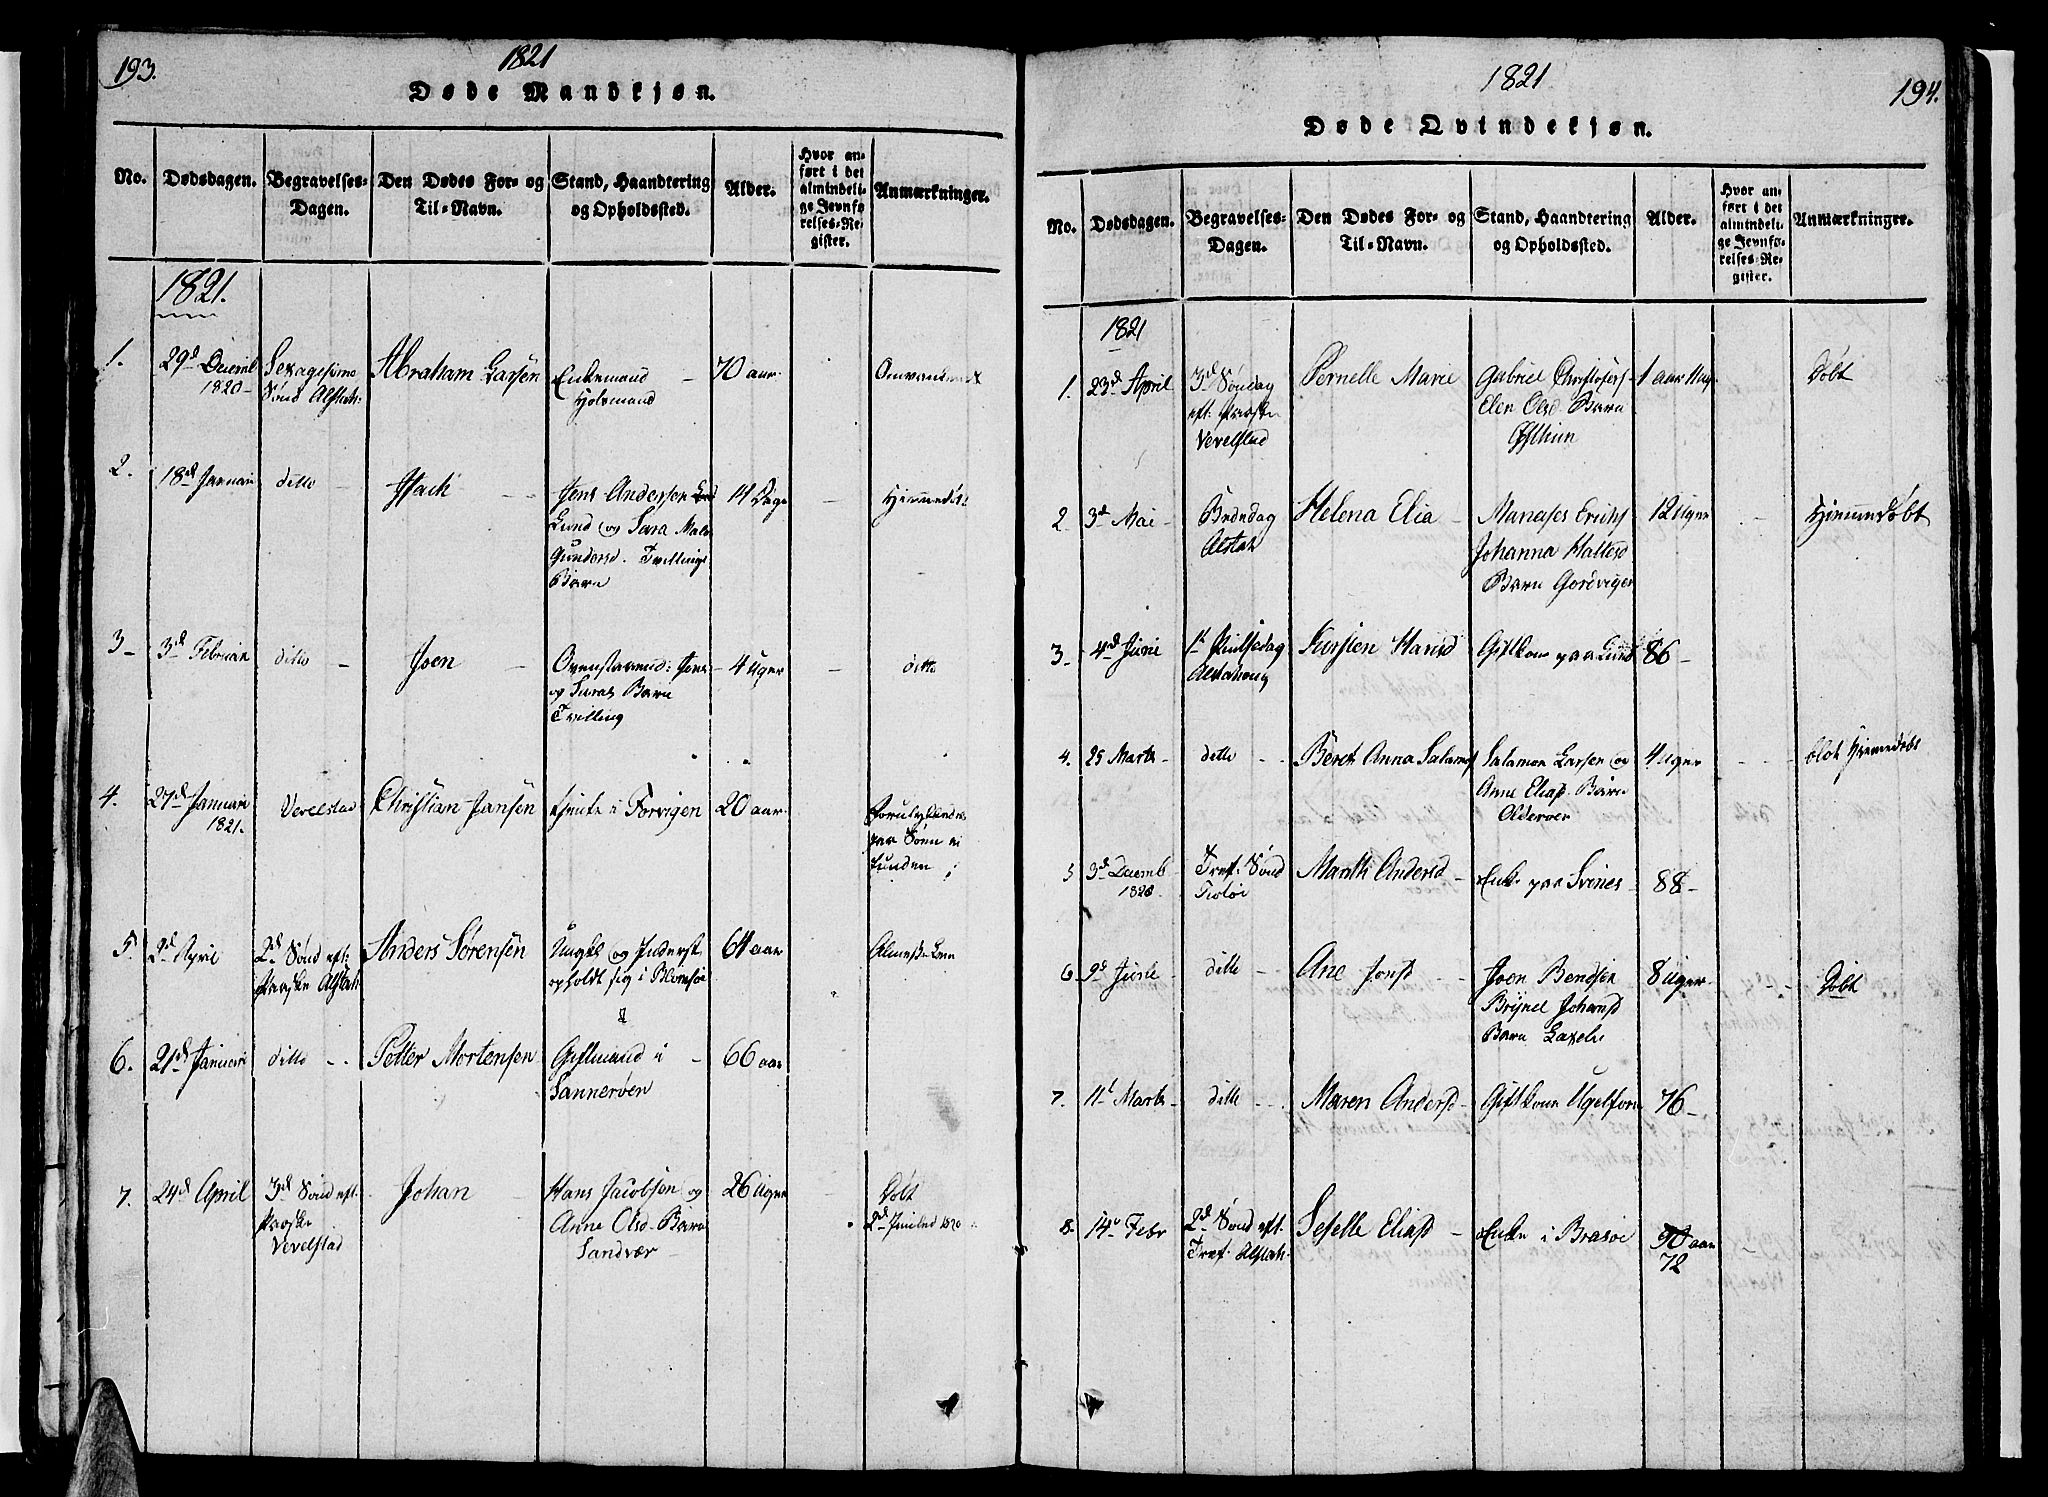 193.
1821
Døde Mandkjøn.
No.
Dødsdagen.
Begravelses-
Dagen.
Den Dødes For- og
Til-Navn.
Stand, Haandtering
og Opholdssted.
Alder.
Hvor an-
ført i det
almindeli-
ge Jevnfø-
relses-Re-
gister.
Anmærkninger.
1821.
1.
29d Decembr
1820
Sexagesima
Sønd Alstah:
Abraham Larsen
Enkemand
70 aar.
2.
18d Januari
ditto
Isach
Jens Andersen
Lund og Sara Mal
Gundersd. Tvillinge
Barn
14 Dage
Hjemmedøbt
3
3d Februari
ditto
Joen
Ovenstaaend: Jens
og Saras Barn
Tvilling
4 Uger
ditto
4.
27d Januari
1821.
Vevelstad
Christian Jansen
tjente i Forvigen
20 aar.
paa Søen ei
funden
5.
2d April
2d Sønd eft:
Paaske Alstah
Anders Sørensen
Ungkl og Inderst
opholdt sig i Blomsøe
64 aar
Almisse Lem
6.
21d Januari
ditto
Petter Mortensen
Giftmand i
Sannerøen
66 aar
7.
24d April
3d Sønd eft.
Paaske
Vevelstad
Johan
Hans Jacobsen og
Anne Olsd. Barn
Sandvær
26 Uger
Døbt
2d Pintsed 1820
1821
194.
Døde Qvindekjøn.
No.
Dødsdagen.
Begravelses-
Dagen.
Den Dødes For- og
Til-Navn.
Stand, Haandtering
og Opholdssted.
Alder.
Hvor an-
ført i det
almindeli-
ge Jevnfø-
relses-Re-
gister.
Anmærkninger.
1821
1.
23d April
3d Søndag
eft. Paaske
Vevelstad
Pernelle Marie
Gabriel Christofers
Elen Olsd Barn
1 aar
Døbt
2
3d Mai
Bededag
Alstah
Helena Elia
Manases Erichs
Johanna Haltesd
Barn
12 Uger
Hjemmedøbt
3
4d Juni
1t Pintsedag
Alstahoug
Kirsten Hansd
Giftkone paa Lund
86
4.
25 Marts
ditto
Beret Anna Salamos
Salamon Larsen og
Anne Eliasd. Barn
Olderøer
4 Uger
blot Hjemmedøbt
5
3d Decemb
1820.
Tref: Sønd
Tiøtøe
Marith Andersd
Enke paa Svines
88
6
9d Juni
ditto
Ane Jonsd
Joen Bendsen
Brynel Johansd
Barn
8 Uger
Døbt
7.
11t Marts
ditto
Maren Andersd
Giftkone
76
8.
14d Febr
2d Sønd eft.
Tref. Alstah:
Sefelle Eliasd
Enke i Brasøe
90 aar
72